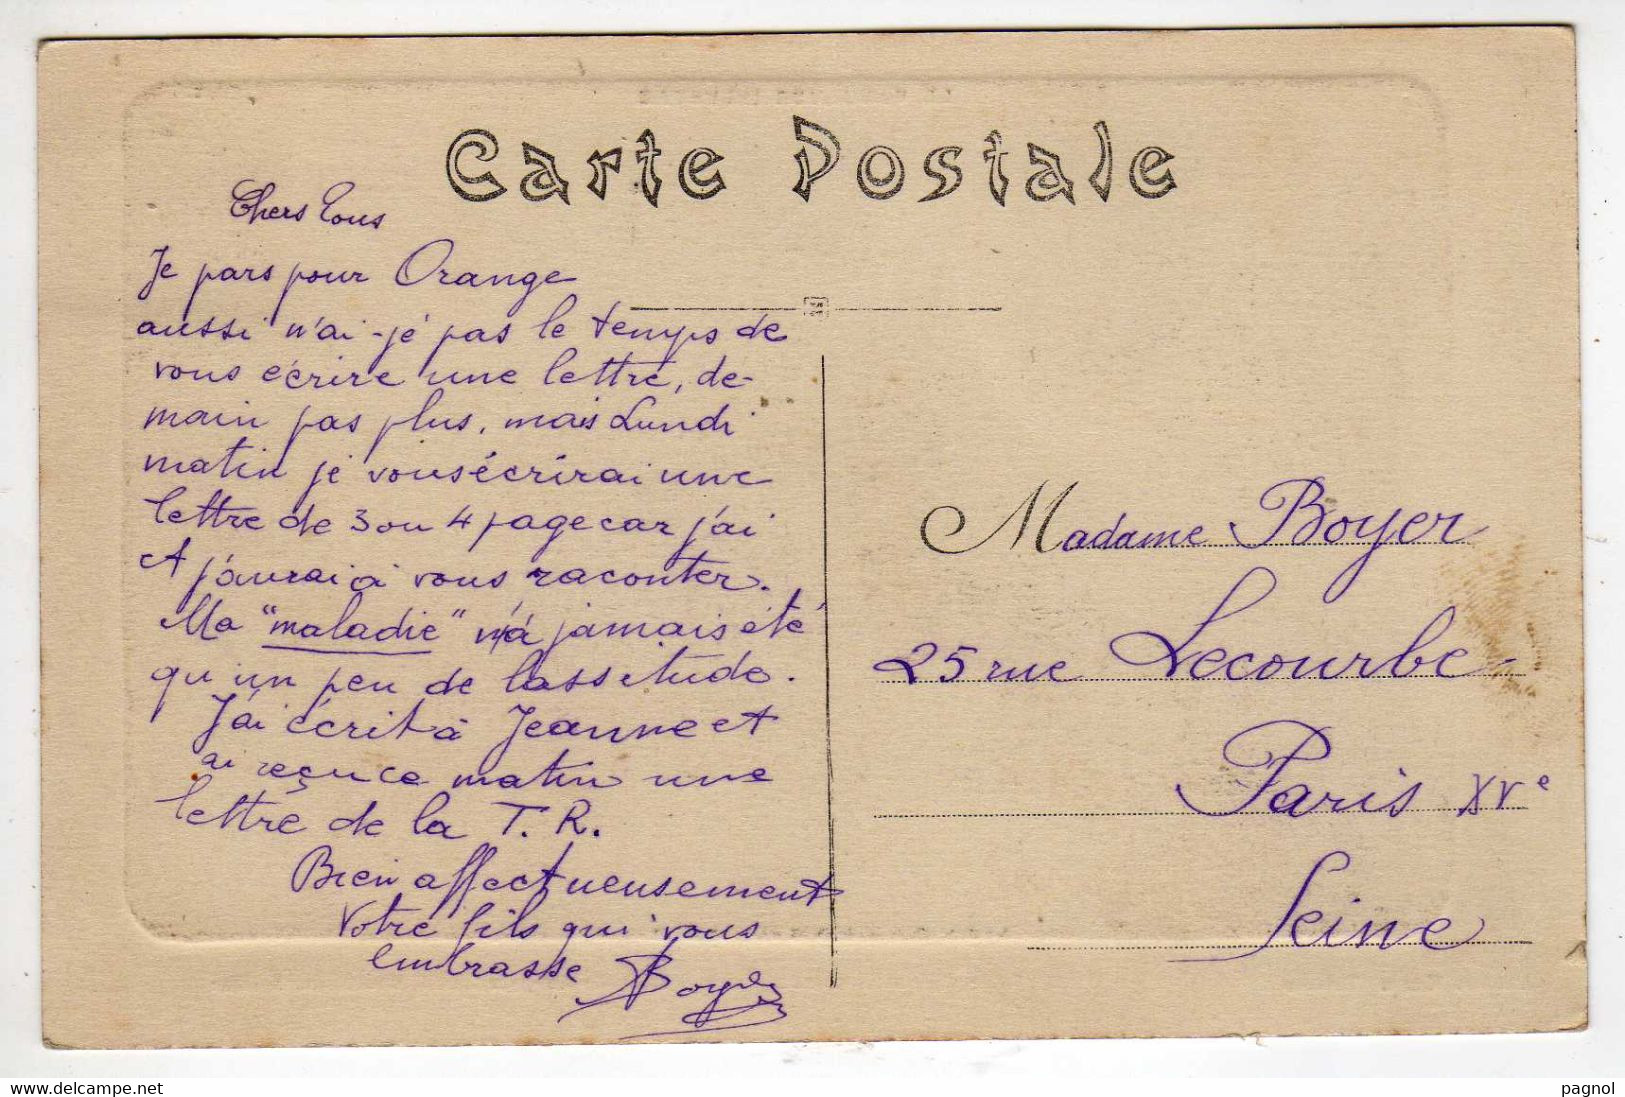 Carte Postale
Chers Tous
Je pars pour Orange
aussi n'ai-je pas le temps de
vous écrire une lettre, de-
main pas plus, mais Lundi
matin je vous écrirai une
lettre de 3 ou 4 page car j'ai
et j'aurai à vous raconter.
Ma "maladie" n'a jamais été
qu'un peu de lassitude.
J'ai écrit à Jeanne et
ai reçu ce matin une
lettre de la T. R.
Bien affectueusement
Votre fils qui vous
embrasse Boyer
Madame Boyer
25 rue Lecourbe
Paris XVe
Seine
www.delcampe.net
pagnol